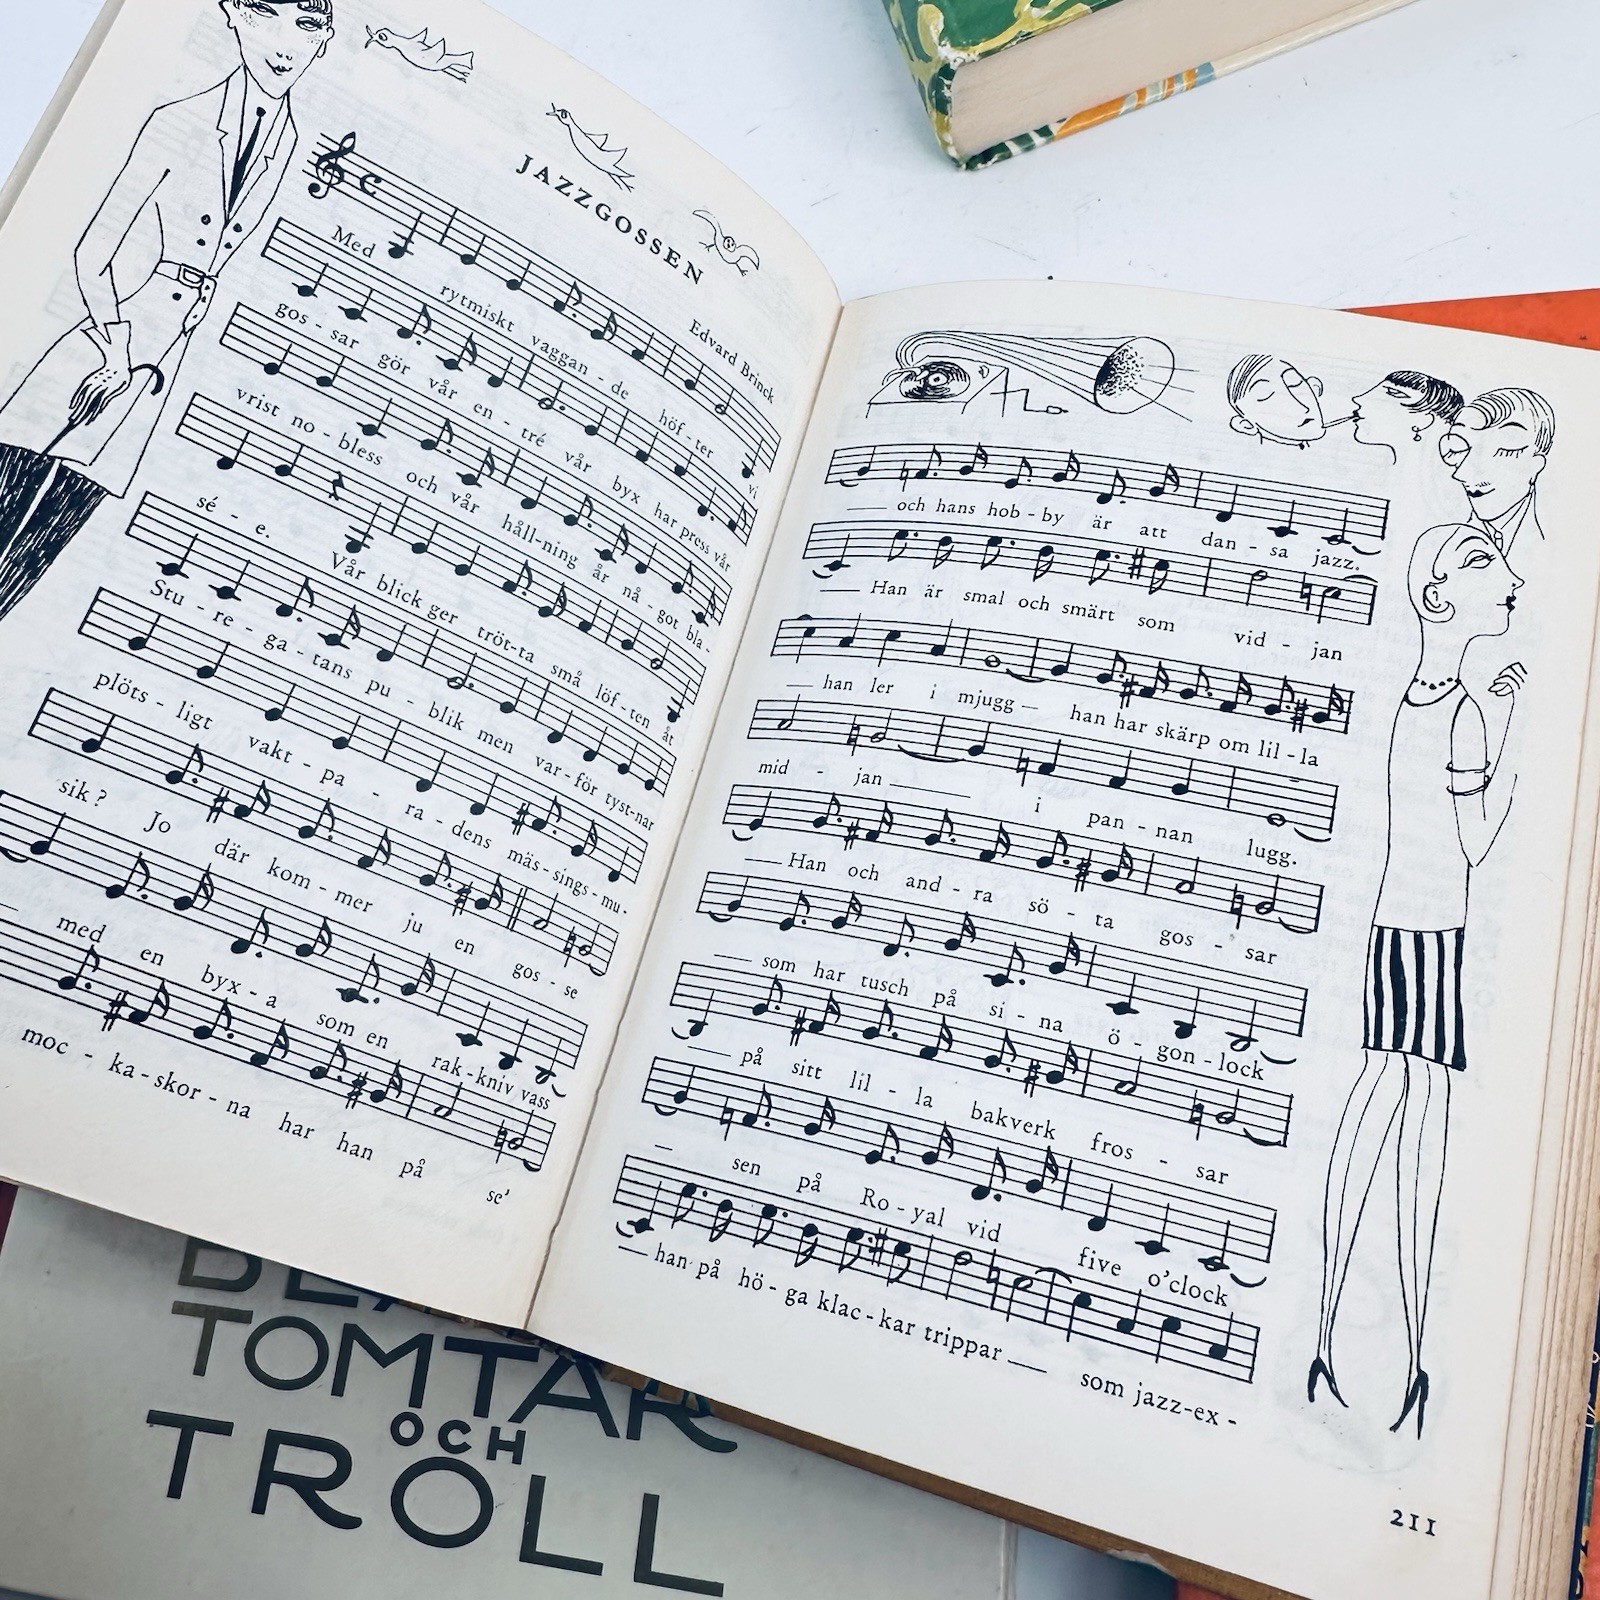 JAZZGOSSEN
Edvard Brinck
Med rytmiskt vaggan - de höf - ter vi
gos - sar gör vår en - tré vår byx har press vår
vrist no - bless och vår håll-ning är nå - got bla -
sé - e. Vår blick ger tröt-ta små löf - ten åt
Stu - re - ga - tans pu - blik men var - för tyst-nar
plöts - ligt vakt - pa - ra - dens mäs - sings - mu -
sik? Jo där kom - mer ju en gos - se
— med en byx - a som en rak - kniv vass
moc - ka - skor - na har han på se'
— och hans hob - by är att dan - sa jazz.
— Han är smal och smärt som vid - jan
— han ler i mjugg — han har skärp om lil - la
mid - jan — i pan - nan lugg.
— Han och and - ra sö - ta gos - sar
— som har tusch på si - na ö - gon - lock
— på sitt lil - la bakverk fros - sar
— sen på Ro - yal vid five o'clock
— han på hö - ga klac - kar trippar — som jazz-ex -
211
TOMTAR
OCH
TROLL